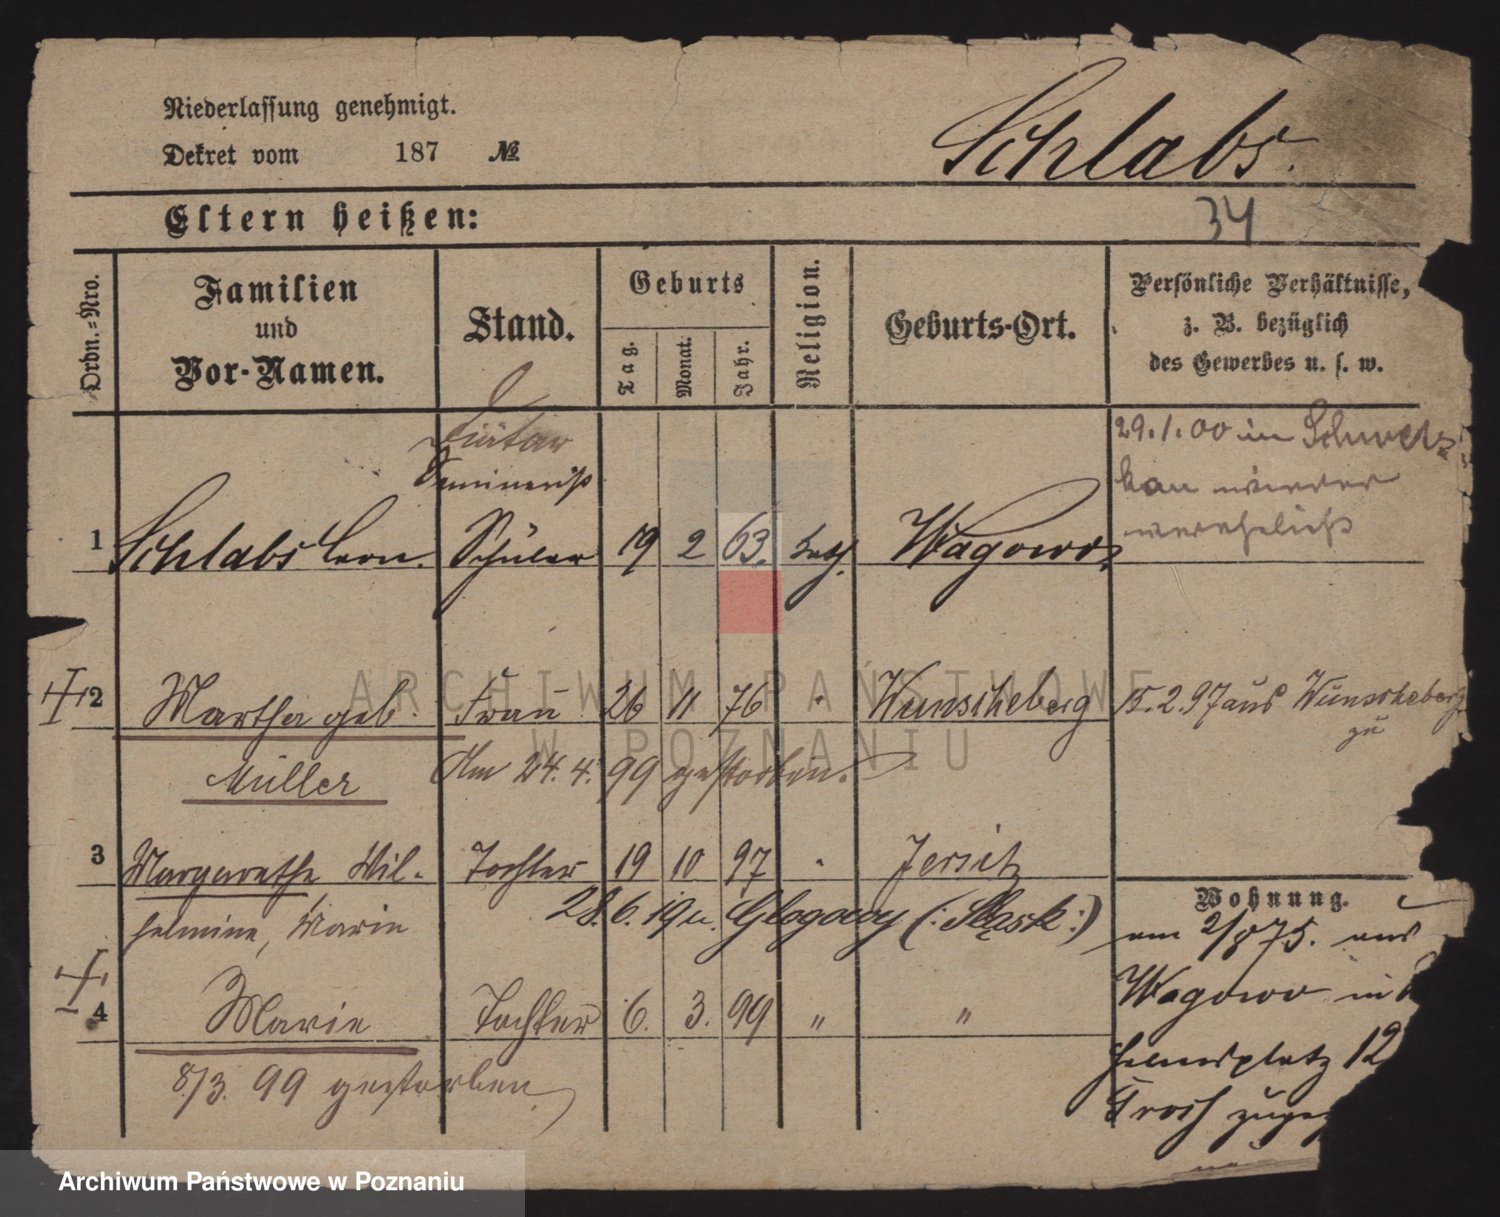 Niederlassung genehmigt.
Schlabs.
Dekret vom 187 №
Eltern heißen:
34
Ordn.=Nro.
Familien und Vor-Namen.
Stand.
Geburts
Tag.
Monat.
Jahr.
Religion.
Geburts-Ort.
Persönliche Verhältnisse,
z. B. bezüglich
des Gewerbes u. s. w.
29.1.00 in
Seminarist
wieder
verehelicht
1 Schlabs Leon. Schüler 19 2 63. kath. Wagowo
2 Martha geb. Frau 26 11 76 " Wünschelberg 15.2.97 aus Wünschelberg
zu
Müller Am 24.4.99 gestorben.
3 Margarethe Wil- Tochter 19 10 97 " Jersitz
Wohnung.
helmine, Marie 28.6.19 u. Glogowy (: Śląsk :)
am 2/8 75. aus
Wagowo in
4 Marie Tochter 6. 3. 99 " "
platz 12
8/3. 99 gestorben.
ARCHIWUM PAŃSTWOWE
W POZNANIU
Archiwum Państwowe w Poznaniu